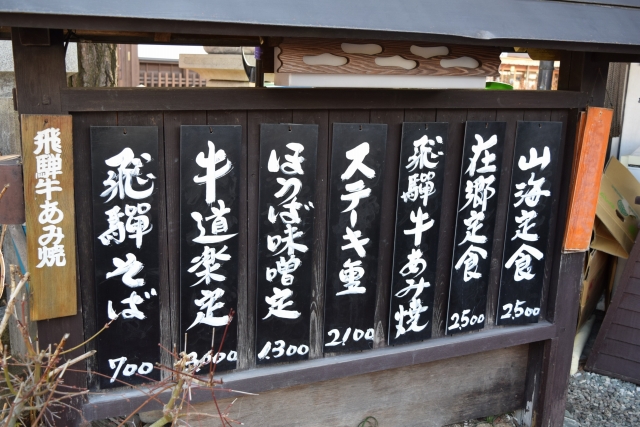 山海定食
2,500
在郷定食
2,500
飛騨牛あみ焼
ステーキ重
2,100
ほうば味噌定
1,300
牛道楽定
3,000
飛騨そば
700
飛騨牛あみ焼